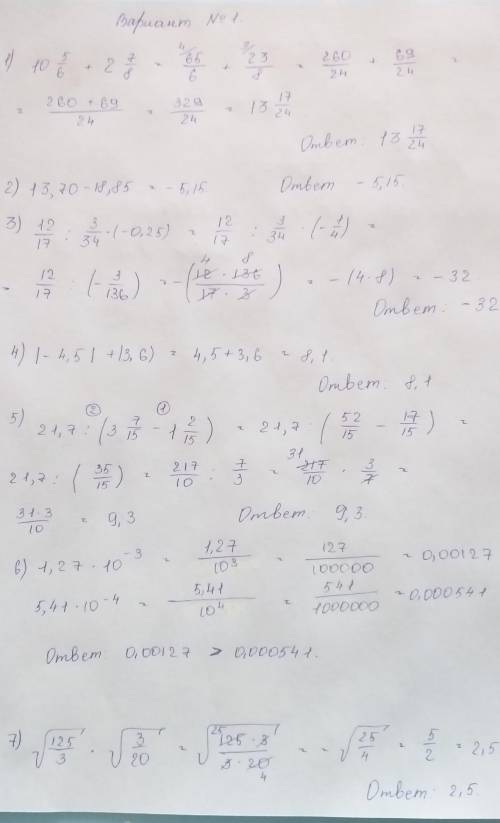 Вариант №1.
1) 10 5/6 + 2 7/8 = 4/ 65/6 + 3/ 23/8 = 260/24 + 69/24 =
= 260 + 69/24 = 329/24 = 13 17/24
Ответ: 13 17/24
2) 13,70 - 18,85 = - 5,15. Ответ - 5,15.
3) 12/17 : 3/34 · (-0,25) = 12/17 : 3/34 · (- 1/4) =
= 12/17 : (- 3/136) = - (4 8 12 · 136/17 · 3) = - (4·8) = - 32
Ответ: - 32
4) |- 4,5| + |3,6) = 4,5 + 3,6 = 8,1.
Ответ: 8,1
5) 21,7 : ② (3 7/15 - ① 1 2/15) = 21,7 : (52/15 - 17/15) =
21,7 : (35/15) = 217/10 : 7/3 = 31 217/10 · 3/7 =
31·3/10 = 9,3 Ответ: 9,3.
6) 1,27 · 10⁻³ = 1,27/10³ = 127/100000 = 0,00127
5,41 · 10⁻⁴ = 5,41/10⁴ = 541/1000000 = 0,000541
Ответ 0,00127 > 0,000541.
7) √125/3 · √3/20 = √25 125 · 3/3 · 20 4 = = √25/4 = 5/2 = 2,5
Ответ: 2,5.